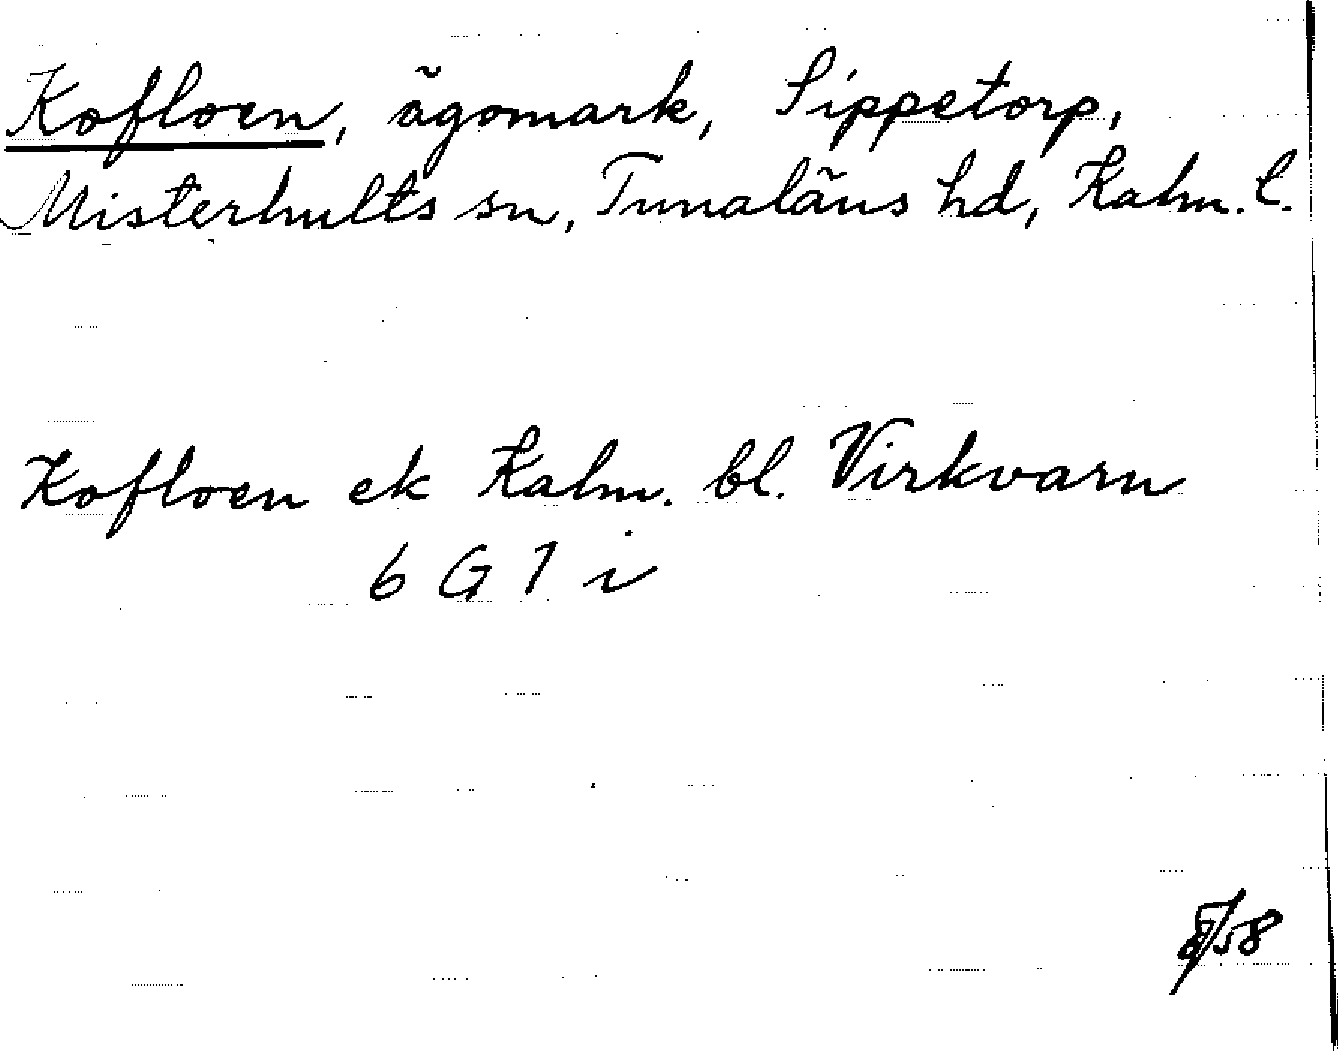 Kofloen, ägomark, Sippetorp,
Misterhults sn, Tunaläns hd, Kalm. l.
Kofloen ek Kalm. bl. Virkvarn
6 G 7 i